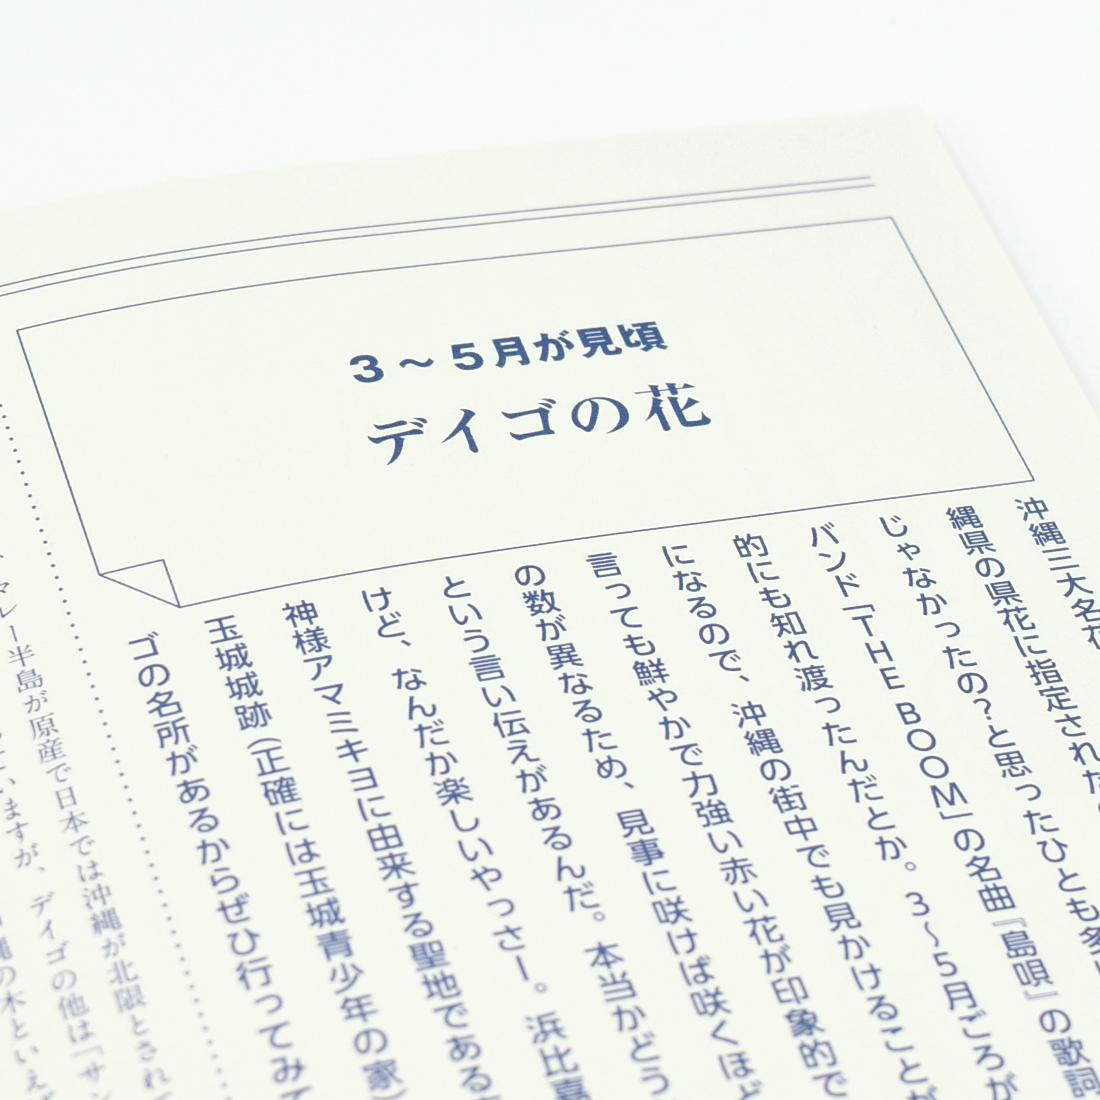 3〜5月が見頃
デイゴの花
沖縄三大名花
縄県の県花に指定された
じゃなかったの?と思ったひとも多い
バンド「THE BOOM」の名曲『島唄』の歌詞
的にも知れ渡ったんだとか。3〜5月ごろが
になるので、沖縄の街中でも見かけることが
言っても鮮やかで力強い赤い花が印象的で
の数が異なるため、見事に咲けば咲くほど
という言い伝えがあるんだ。本当かどう
けど、なんだか楽しいやっさー。浜比嘉
神様アマミキヨに由来する聖地である
玉城城跡(正確には玉城青少年の家)
ゴの名所があるからぜひ行ってみて
マレー半島が原産で日本では沖縄が北限とされ
いますが、デイゴの他は「サン
縄の木といえば